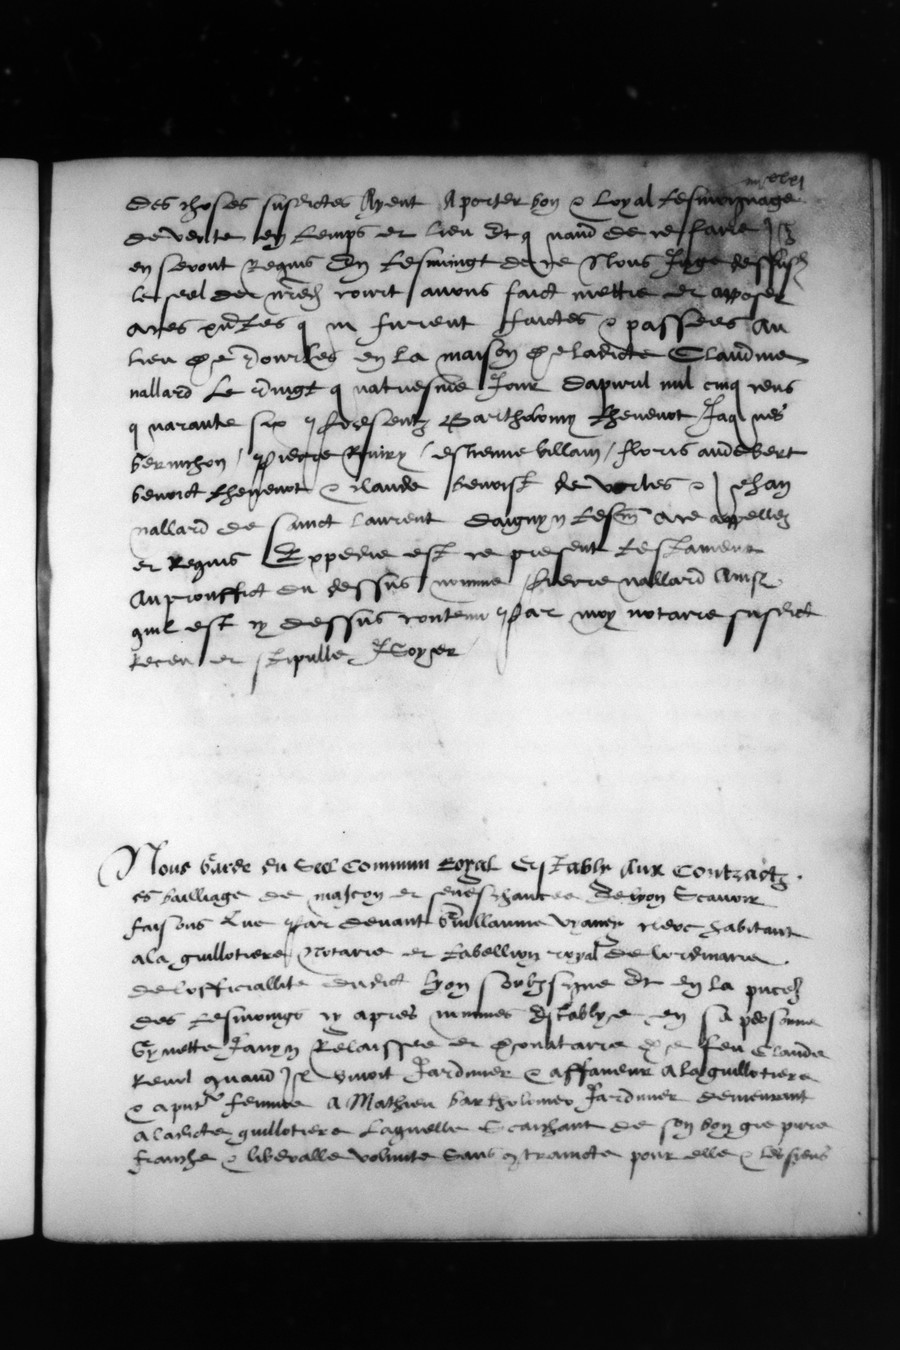 des choses susdictes Ayent A porter bon & Loyal tesmoignage
de verite en temps et lieu et quand de ce faire Ilz
en seront Requis En tesmoingt de ce Nous Juge dessusd
le seel de nred court avons faict mettre et apposer
A ces pntes qui furent faictes & passees Au
lieu de en la maison de ladicte Claudine
nallard Le vingt quatriesme Jour Dapvril mil cinq cens
quarante six / Presentz Barthelomy Thevenot Jaques
berinchon / Pierre / estienne billam / floris audebert
benoict thevenot & claude benoist de vorles & Jehan
nallard de sainct laurent daigny tesm A ce appellez
et Requis Expedie est ce present testament
Au prouffict du dessus nomme Pierre nallard Ainsi
quil est cy dessus contenu Par moy notaire susdict
Receu et stipulle
Nous Garde du Seel Commun Royal Estably Aux Contractz
es bailliage de mascon et seneschaucee de lyon Scavoir
faisons Que Par devant Guillaume clerc habitant
a la guillotiere Notaire et tabellion royal de lordinaire
de lofficiallite dudict lyon soubzsigne et en la pnced
des tesmoings cy apres nommes Establye en sa personne
Gynette Janyn Relaissee et de feu Claude
Revil quand Il vivoit Jardinier & affaneur A la guillotiere
& a pnt femme A Mathieu bartholomeo Jardinier demeurant
a ladicte guillotiere Laquelle Scaichant de son bon gre pure
franche & liberalle volunte Sans contraincte pour elle & les siens